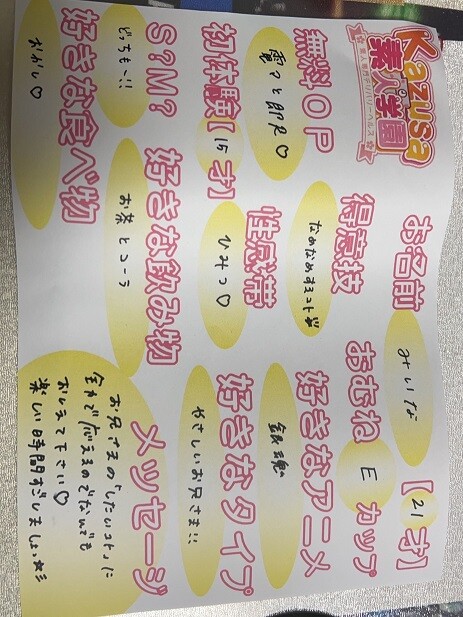 Kazusa
素人学園
お名前 みいな 【21才】
おむね E カップ
無料OP
電マと即尺♡
得意技
なめなめすること
好きなアニメ
銀魂
初体験【15才】
性感帯
ひみつ♡
好きなタイプ
やさしいお兄さま!!
S?M?
どっちも〜!!
好きな飲み物
お茶とコーラ
好きな食べ物
おかし♡
メッセージ
お兄さまの「したいコト」に
全力で応えるのでなんでも
おしえて下さい♡
楽しい時間すごしましょ